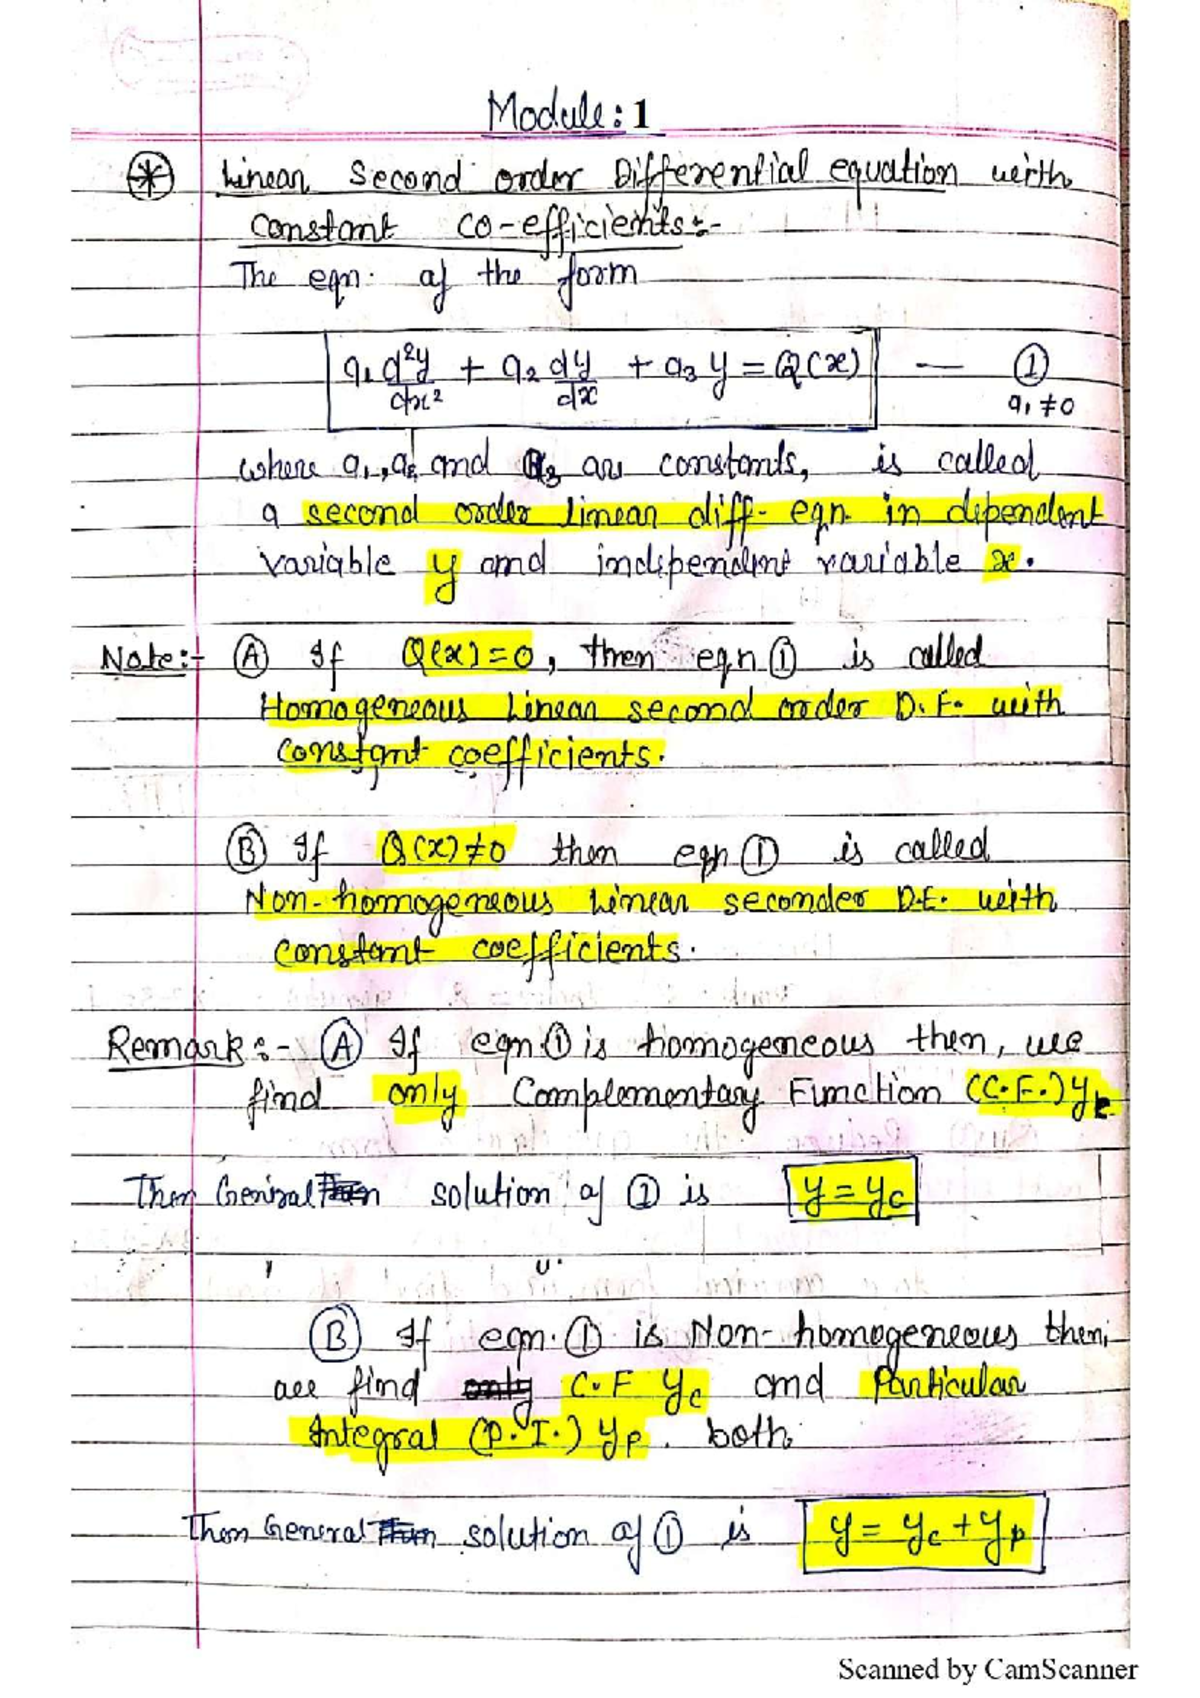 Module: 1
Linear Second order Differential equation with
constant co-efficients:-
The eqn. of the form
a₁ d²y/dx² + a₂ dy/dx + a₃ y = Q(x) — ①
a₁ ≠ 0
where a₁, a₂ and a₃ are constants, is called
a second order linear diff- eqn. in dependent
variable y and independent variable x.
Note:- Ⓐ If Q(x)=0, then eqn ① is called
Homogeneous Linear second order D.E. with
constant coefficients.
Ⓑ If Q(x)≠0 then eqn ① is called
Non-homogeneous Linear seconder D.E. with
constant coefficients.
Remark:- Ⓐ If eqn ① is homogeneous then, we
find only Complementary Function (C.F.) y
Then General solution of ① is y = yc
Ⓑ If eqn. ① is Non-homogeneous then,
we find only C.F yc and Particular
Integral (P.I.) yp. both.
Then General solution of ① is y = yc + yp
Scanned by CamScanner